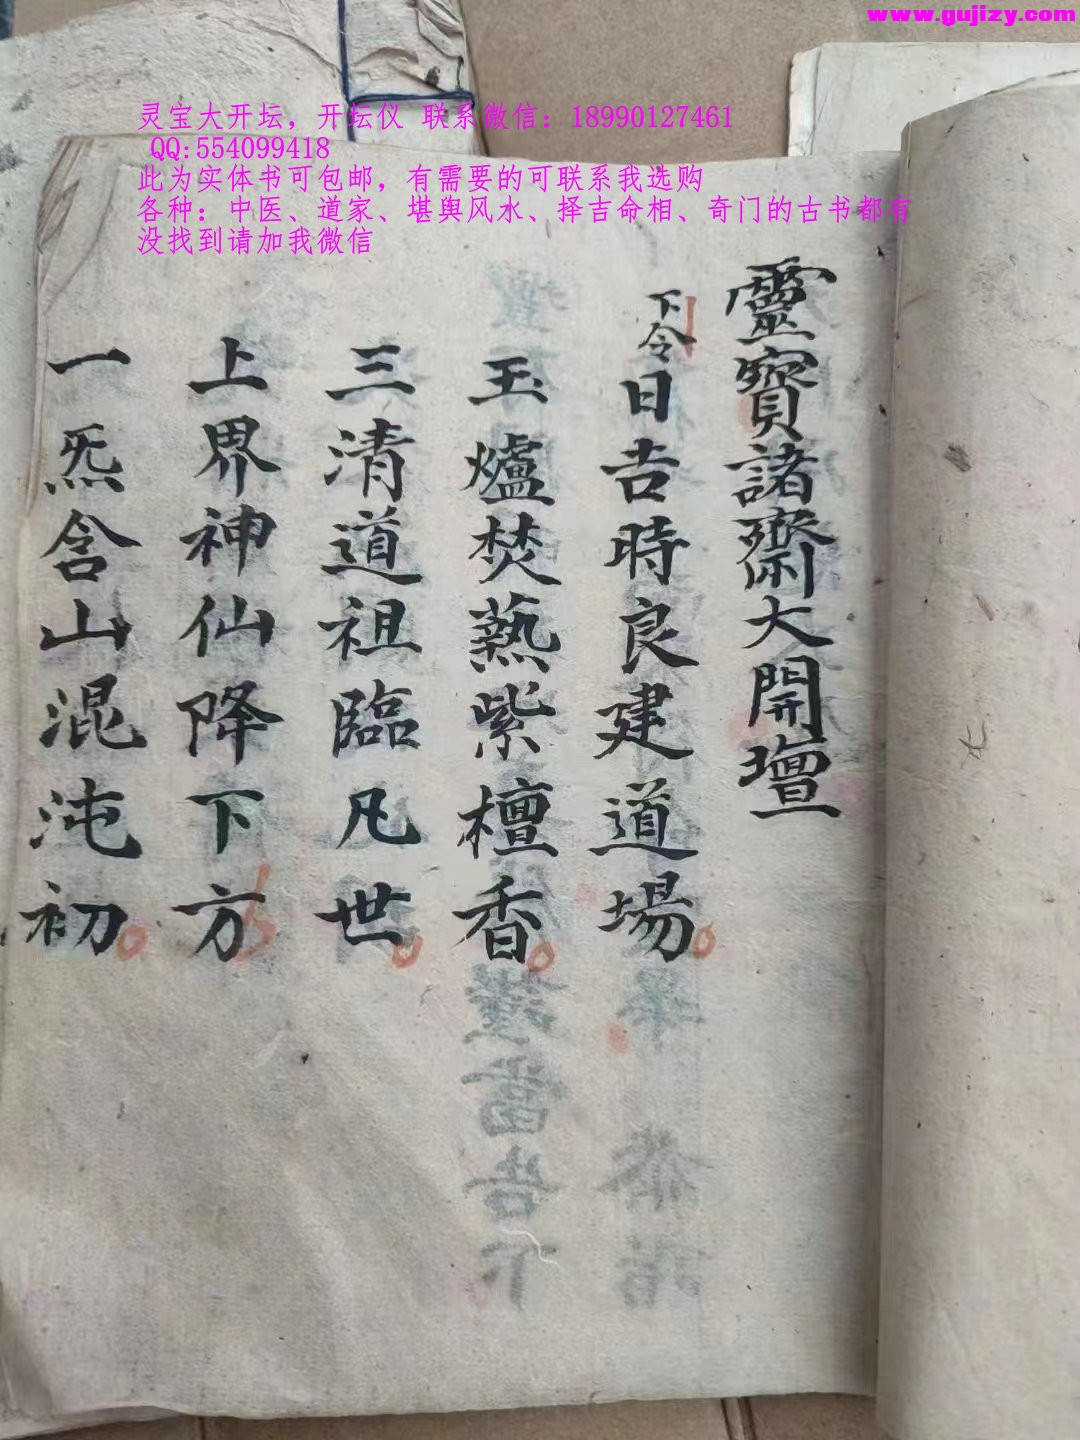 www.gujizy.com
灵宝大开坛，开坛仪 联系微信：18990127461
QQ:554099418
此为实体书可包邮，有需要的可联系我选购
各种：中医、道家、堪舆风水、择吉命相、奇门的古书都有
没找到请加我微信
靈寶諸齋大開壇
下令
日吉時良建道場
玉爐焚爇紫檀香
三清道祖臨凡世
上界神仙降下方
一炁含山混沌初